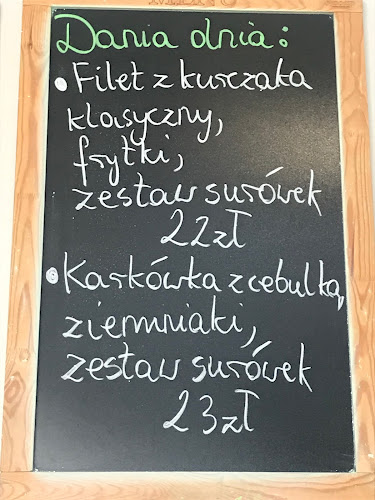 Dania dnia:
• Filet z kurczaka
klasyczny,
frytki,
zestaw surówek
22zł
• Karkówka z cebulką,
ziemniaki,
zestaw surówek
23zł